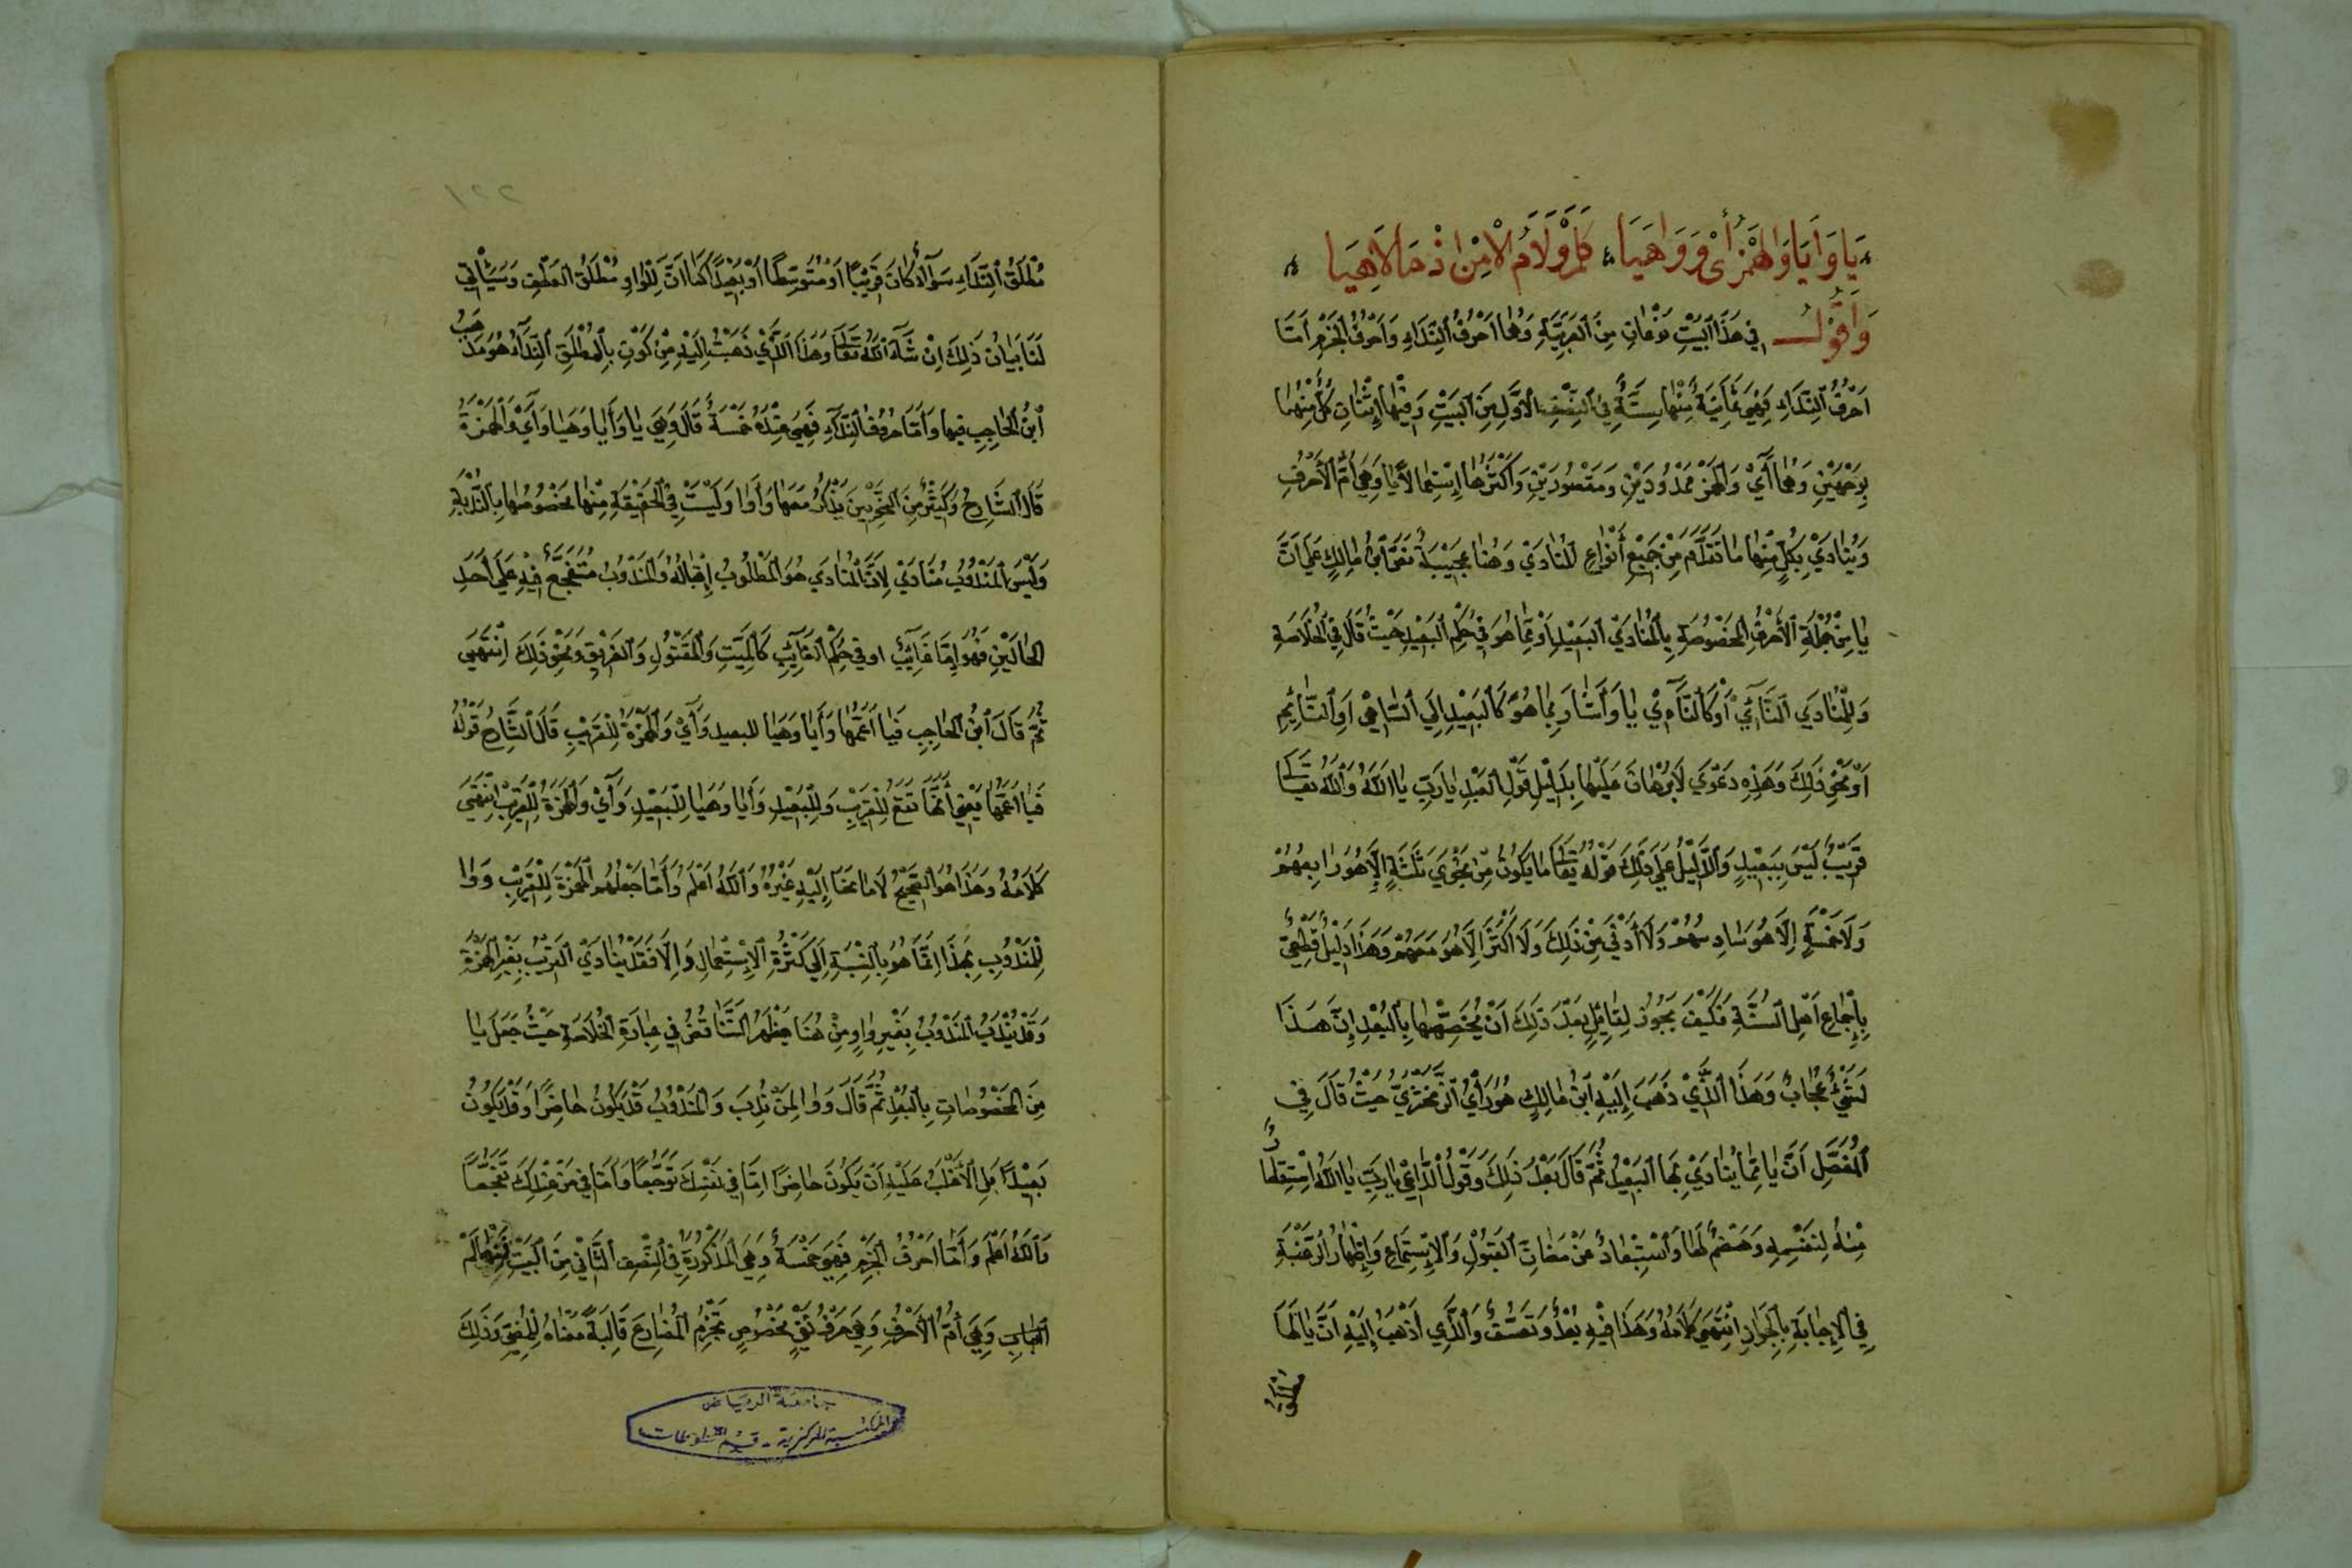 يَا وَأَيَا وَالهَمْزُ أَيْ وَوَا هَيَا كَلَمْ وَلَامُ الْأَمْرِ
وَأَقُولُ في هَذَا البَيْتِ نَوْعَانِ مِنَ العَرَبِيَّةِ وَهُمَا أَحْرُفُ النِّدَاءِ وَأَحْرُفُ الجَزْمِ أَمَّا
أَحْرُفُ النِّدَاءِ فَهِيَ ثَمَانِيَةٌ مِنْهَا سِتَّةٌ فِي النِّصْفِ الأَوَّلِ مِنَ البَيْتِ وَفِيهَا اثْنَانِ كُلٌّ مِنْهُمَا
بِوَجْهَيْنِ وَهُمَا أَيْ وَالهَمْزُ مَمْدُودَيْنِ وَمَقْصُورَيْنِ وَأَكْثَرُهَا اسْتِعْمَالًا يَا وَهِيَ أُمُّ الأَحْرُفِ
وَيُنَادَيْ بِكُلٍّ مِنْهَا مَا تَقَدَّمَ مِنْ جَمِيعِ أَنْوَاعِ المُنَادَيْ وَهُنَا عَجِيبَةٌ نَصَّ ابْنُ مَالِكٍ عَلَى أَنَّ
يَا مِنْ جُمْلَةِ الأَحْرُفِ المَخْصُوصَةِ بِالمُنَادَيْ البَعِيدِ أَوْ بِمَا هُوَ فِي حُكْمِ البَعِيدِ حَيْثُ قَالَ فِي الخُلَاصَةِ
وَلِلْمُنَادَى النَّائِيْ أَوْ كَالنَّاءِي يَا وَأَشَارَ بِمَا هُوَ كَالبَعِيدِ إِلَى السَّاهِي أَوِ النَّائِمِ
أَوْ نَحْوِ ذَلِكَ وَهَذِهِ دَعْوَى لَا بُرْهَانَ عَلَيْهَا بِدَلِيلِ قَوْلِ العَبْدِ يَا رَبِّ يَا اللَّهُ وَاللَّهُ تَعَالَى
قَرِيبٌ لَيْسَ بِبَعِيدٍ وَالدَّلِيلُ عَلَى ذَلِكَ قَوْلُهُ تَعَالَى مَا يَكُونُ مِنْ نَجْوَى ثَلَثَةٍ إِلَّا هُوَ رَابِعُهُمْ
وَلَا خَمْسَةٍ إِلَّا هُوَ سَادِسُهُمْ وَلَا أَدْنَى مِنْ ذَلِكَ وَلَا أَكْثَرَ إِلَّا هُوَ مَعَهُمْ وَهَذَا دَلِيلٌ قَطْعِيٌّ
بِإِجْمَاعِ أَهْلِ السُّنَّةِ فَكَيْفَ يَجُوزُ لِقَائِلٍ بَعْدَ ذَلِكَ أَنْ يُخَصِّصَهَا بِالبُعْدِ إِنَّ هَذَا
لَشَيْءٌ عُجَابٌ وَهَذَا الَّذِيْ ذَهَبَ إِلَيْهِ ابْنُ مَالِكٍ هُوَ رَأْيُ الزَّمَخْشَرِيِّ حَيْثُ قَالَ فِي
المُفَصَّلِ أَنَّ يَا مِمَّا يُنَادَيْ بِهَا البَعِيدُ ثُمَّ قَالَ بَعْدَ ذَلِكَ وَقَوْلُ الدَّاعِي يَا رَبِّ يَا اللَّهُ
مِنْهُ لِنَفْسِهِ وَهَضْمٌ لَهَا وَاسْتِبْعَادٌ عَنْ مَظَانِّ القَبُولِ وَالاسْتِمَاعِ وَإِظْهَارُ الرَّغْبَةِ
فِي الإِجَابَةِ انْتَهَى كَلَامُهُ وَهَذَا فِيْهِ بُعْدٌ وَتَعَسُّفٌ وَالَّذِي أَذْهَبُ إِلَيْهِ أَنَّ يَا لَهَا
مُطْلَقُ
١٢٢
مُطْلَقُ النِّدَاءِ سَوَآءٌ كَانَ قَرِيبًا أَوْ مُتَوَسِّطًا أَوْ بَعِيدًا كَمَا أَنَّ لِلْوَاوِ مُطْلَقَ العَطْفِ وَسَيَأْتِي
لَنَا بَيَانُ ذَلِكَ إِنْ شَآءَ اللَّهُ تَعَالَى وَهَذَا الَّذِي ذَهَبْتُ إِلَيْهِ مِنْ كَوْنِ يَا لِمُطْلَقِ النِّدَآءِ هُوَ مَذْهَبُ
ابْنِ الحَاجِبِ فِيهَا وَأَمَّا حُرُوفُ النِّدَاءِ فَهِيَ عِنْدَهُ خَمْسَةٌ قَالَ وَهِيَ يَا وَأَيَا وَهَيَا وَأَيْ وَالهَمْزَةُ
قَالَ الشَّارِحُ وَكَثِيرٌ مِنَ النَّحْوِيِّينَ يَذْكُرُ مَعَهَا وَا وَلَيْسَتْ فِي الحَقِيقَةِ مِنْهَا بِالنُّدْبَةِ
وَلَيْسَ المَنْدُوبُ مُنَادَيْ لِأَنَّ المُنَادَى هُوَ المَطْلُوبُ إِقْبَالُهُ وَالمَنْدُوبُ مُتَفَجَّعٌ فِيْهِ عَلَى أَحَدِ
الحَالَيْنِ فَهُوَ إِمَّا غَائِبٌ أو فِي حُكْمِ الغَائِبِ كَالمَيِّتِ وَالمَقْتُولِ وَالغَرِيقِ وَنَحْوِ ذَلِكَ انْتَهَى
ثُمَّ قَالَ ابْنُ الحَاجِبِ فَيَا أَعَمُّهَا وَأَيَا وَهَيَا للبعيد وَأَيْ وَالهَمْزَةُ لِلْقَرِيبِ قَالَ الشَّارِحُ قَوْلُهُ
فَيَا أَعَمُّهَا يَعْنِي أَنَّهَا تَقَعُ لِلْقَرِيبِ وَلِلْبَعِيدِ وَأَيَا وَهَيَا لِلْبَعِيدِ وَأَيْ وَالهَمْزَةُ لِلْقَرِيبِ انْتَهَى
كَلَامُهُ وَهَذَا هُوَ الصَّحِيحُ لَا مَا نَحَا إِلَيْهِ غَيْرُهُ وَاللَّهُ أَعْلَمُ وَأَمَّا جَعْلُهُمُ الهَمْزَةَ لِلْقَرِيبِ وَوَا
لِلْمَنْدُوبِ فَهَذَا إِنَّمَا هُوَ بِالنِّسْبَةِ إِلَى كَثْرَةِ الاسْتِعْمَالِ وَإِلَّا فَقَدْ يُنَادَيْ القَرِيبُ بِغَيْرِ الهَمْزَةِ
وَقَدْ يُنْدَبُ المَنْدُوبُ بِغَيْرِ وَاوٍ وَمِنْ هُنَا يَظْهَرُ التَّنَاقُضُ فِي عِبَارَةِ الخُلَاصَةِ حَيْثُ جَعَلَ يَا
مِنَ المَخْصُوصَاتِ بِالبُعْدِ ثُمَّ قَالَ وَوَا لِمَنْ نُدِبَ وَالمَنْدُوبُ قَدْ يَكُونُ حَاضِرًا وَقَدْ يَكُونُ
بَعِيدًا بَلِ الأَغْلَبُ عَلَيْهِ أَنْ يَكُونَ حَاضِرًا إِمَّا فِي نَفْسِكَ تَوَجُّعًا وَأَمَّا فِي مَنْ عِنْدَكَ تَفَجُّعًا
وَاللَّهُ أَعْلَمُ وَأَمَّا أَحْرُفُ الجَزْمِ فَهِيَ خَمْسَةٌ وَهِيَ المَذْكُورَةُ فِي النِّصْفِ الثَّانِي مِنَ البَيْتِ فَمِنْهَا لَمْ
وَهِيَ أُمُّ الأَحْرُفِ وَهِيَ حَرْفُ نَفْيٍ مَخْصُوصٍ تَجْزِمُ المُضَارِعَ قَالِبَةً مَعْنَاهُ لِلْمُضِيِّ وَذَلِكَ
جامعة الرياض
المكتبة المركزية - قسم المخطوطات